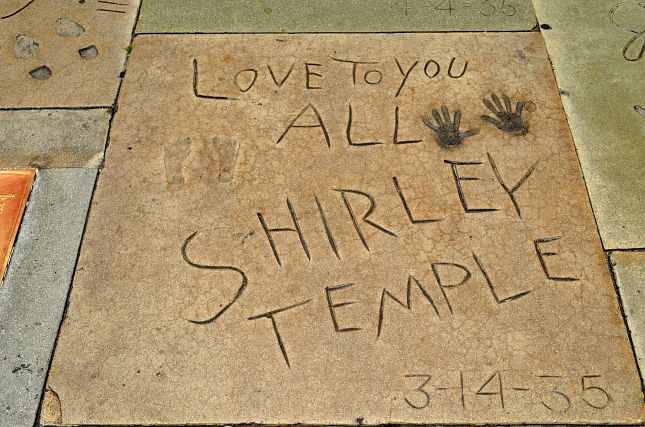 4-4-36
LOVE TO YOU
ALL
SHIRLEY
TEMPLE
3-14-35